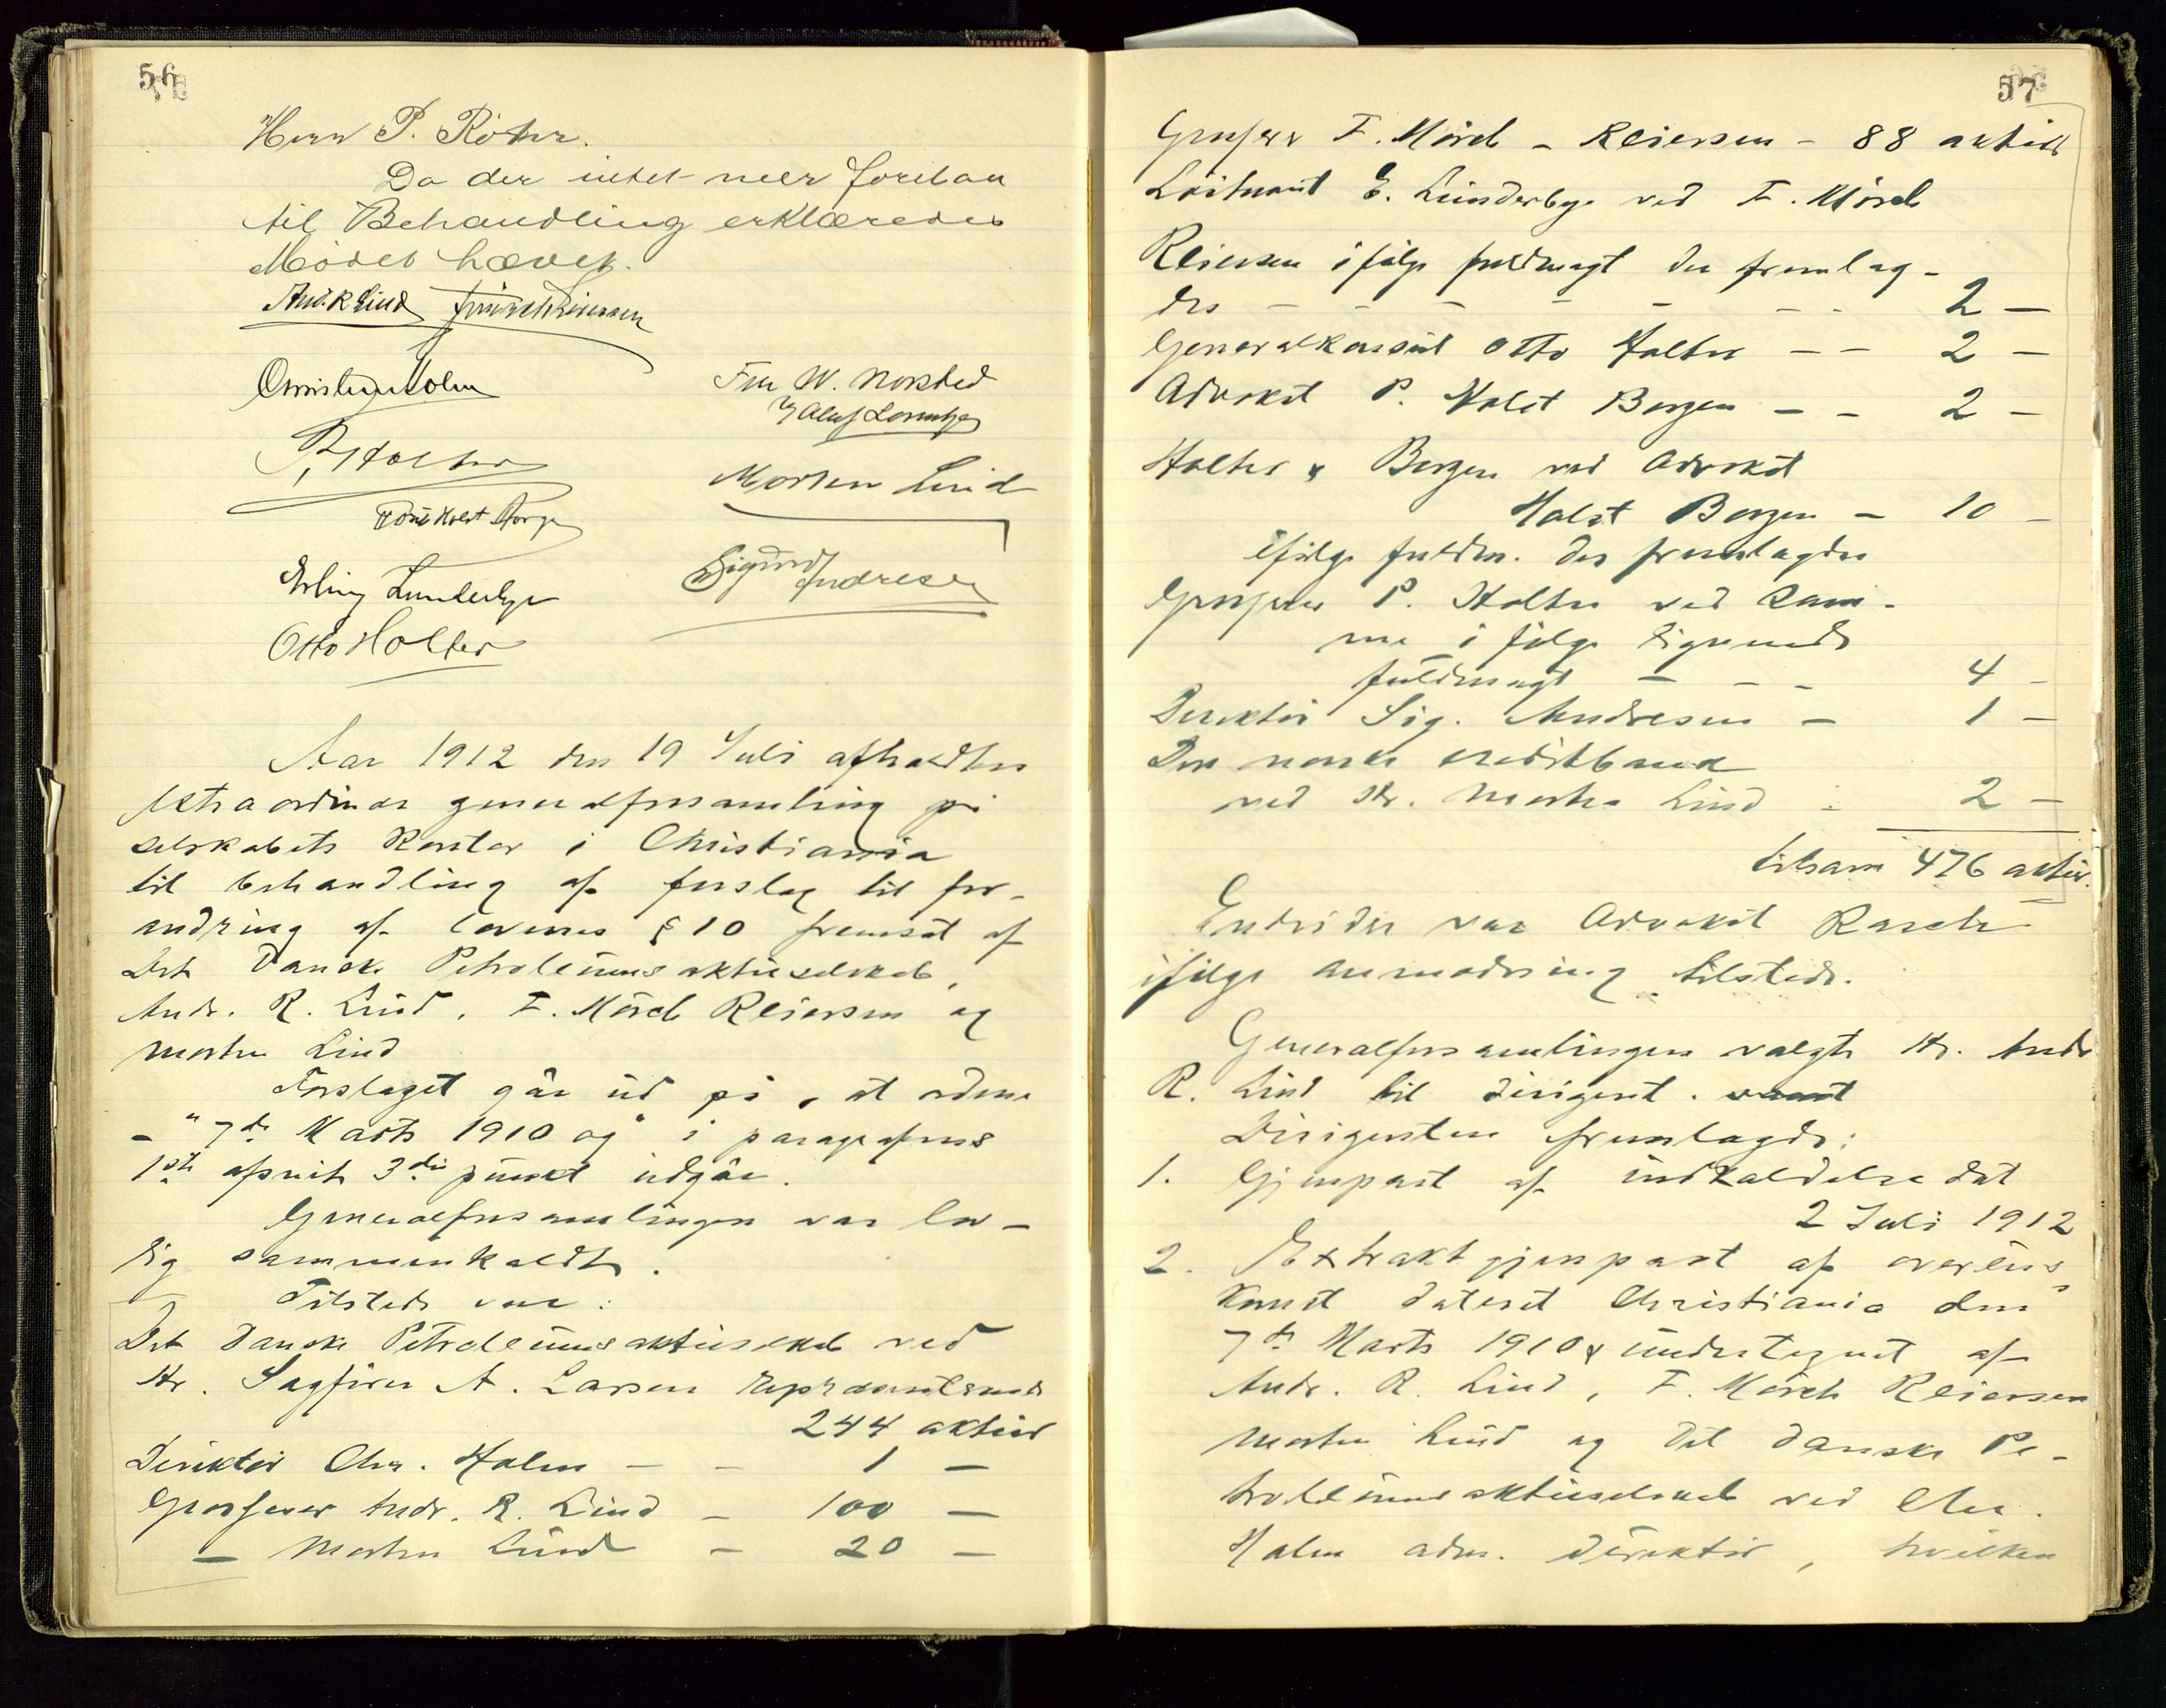 56
Herr P. Röhr.
Da der intet meer forelaa
til Behandling erklæredes
Mödet hævet.
Andr. R Lind F. Mörch Reiersen
Christian Holm
For W. Norsted
Oluf Lorentzen
P. Holter
Morten Lind
Holst Borgen
Sigurd Andresen
Erling Lunderbye
Otto Holter
Aar 1912 den 19 Juli afholdtes
extraordinær generalforsamling på
selskabets Kontor i Christiania
til behandling af forslag til for-
andring af lovenes § 10 fremsat af
Det Danske Petroleumsaktieselskab,
Andr. R. Lind, F. Mörch Reiersen og
Morten Lind
Forslaget går ud på, at ordene
- "7de Marts 1910 og" i paragrafens
1ste afsnit 3die punkt udgår.
Generalforsamlingen var lov-
lig sammenkaldt.
Tilstede var:
Det Danske Petroleumsaktieselskab ved
Hr. Sagförer A. Larsen repræsenterende
244 aktier
Direktör Chr. Holm - - 1 -
Grosserer Andr. R. Lind - 100 -
- Morten Lind - 20 -
57
Grosserer F. Mörch - Reiersen - 88 aktier
Löitnant E. Lunderbye ved F. Mörch
Reiersen ifölge fuldmagt der fremlag-
des - - - - - - - 2 -
Generalkonsul Otto Holter - - 2 -
Advokat P. Holst Borgen - - 2 -
Holter & Borgen ved Advokat
Holst Borgen - 10 -
ifölge fuldm. der fremlagdes
Grosserer P. Holter ved sam-
me i fölge lignende
fuldmagt - - - 4 -
Direktör Sig. Andresen - 1 -
Den norske creditbank
ved Hr. Morten Lind - 2 -
tilsam 476 aktier.
Endvidere var Advokat Rasch
ifölge anmodning tilstede.
Generalforsamlingen valgte Hr. Andr
R. Lind til dirigent.
Dirigenten fremlagde:
1. Gjenpart af indkaldelse dat
2 Juli 1912
2. Extraktgjenpart af overens
komst dateret Christiania den
7de Marts 1910 & undertegnet af
Andr. R. Lind, F. Mörch Reiersen
Morten Lind og Det danske Pe-
troleumsaktieselskab ved Chr.
Holm adm. direktör, hvilken